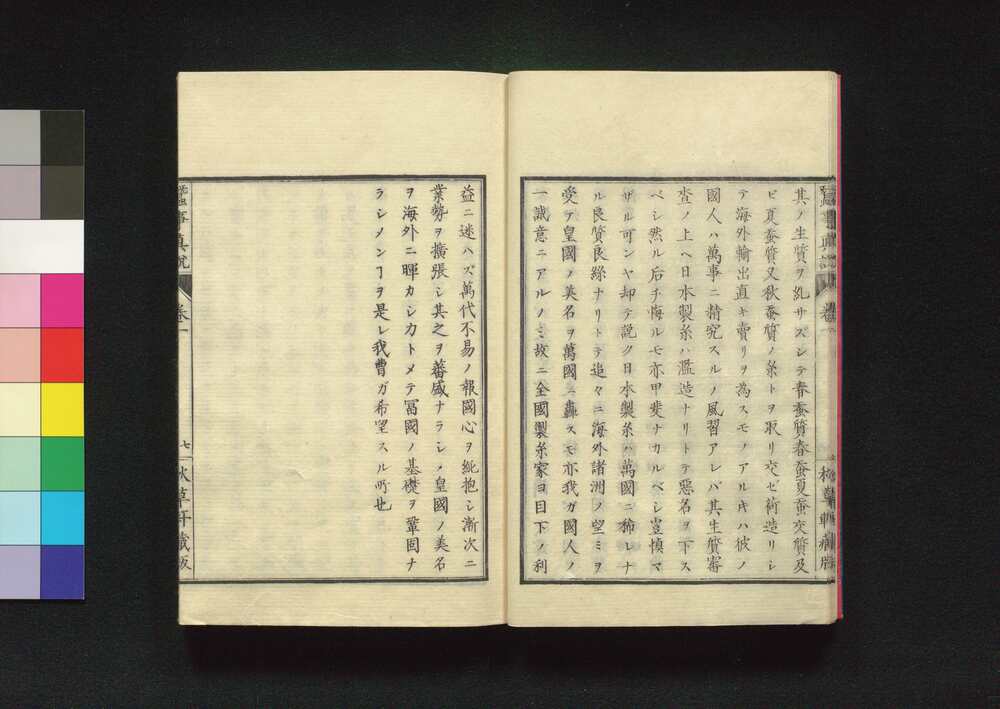 其ノ生質ヲ糺サズシテ春蚕質春蚕夏蚕交質及
ビ夏蚕質又秋蚕質ノ糸トヲ取リ交ゼ術造リシ
テ海外輸出直キ賣リヲ為スモノアル片ハ彼ノ
國人ハ萬事ニ精究スルノ風習アレバ其生質審
査ノ上ヘ日本製糸ハ濫造ナリトテ惡名ヲ下ス
ベシ然ル后チ悔ルモ亦甲斐ナカルベシ豈慎マ
ザル可ンヤ却テ説ク日本製糸ハ萬國ニ稀レナ
ル良質良絲ナリトテ追々ニ海外諸洲ノ望ミヲ
受テ皇國ノ美名ヲ萬國ニ轟スモ亦我ガ國人ノ
一誠意ニアルノミ故ニ全國製糸家ヨ目下ノ利
益ニ迷ハズ萬代不易ノ報國心ヲ
抱シ漸次ニ
業勢ヲ擴張シ其之ヲ蕃盛ナラシメ皇國ノ美名
ヲ海外ニ暉カシ力トメテ冨國ノ基礎ヲ鞏固ナ
ラシメンヿヲ是レ我曹ガ希望スル所也
蚕事真説
卷一
七
秋草軒藏版